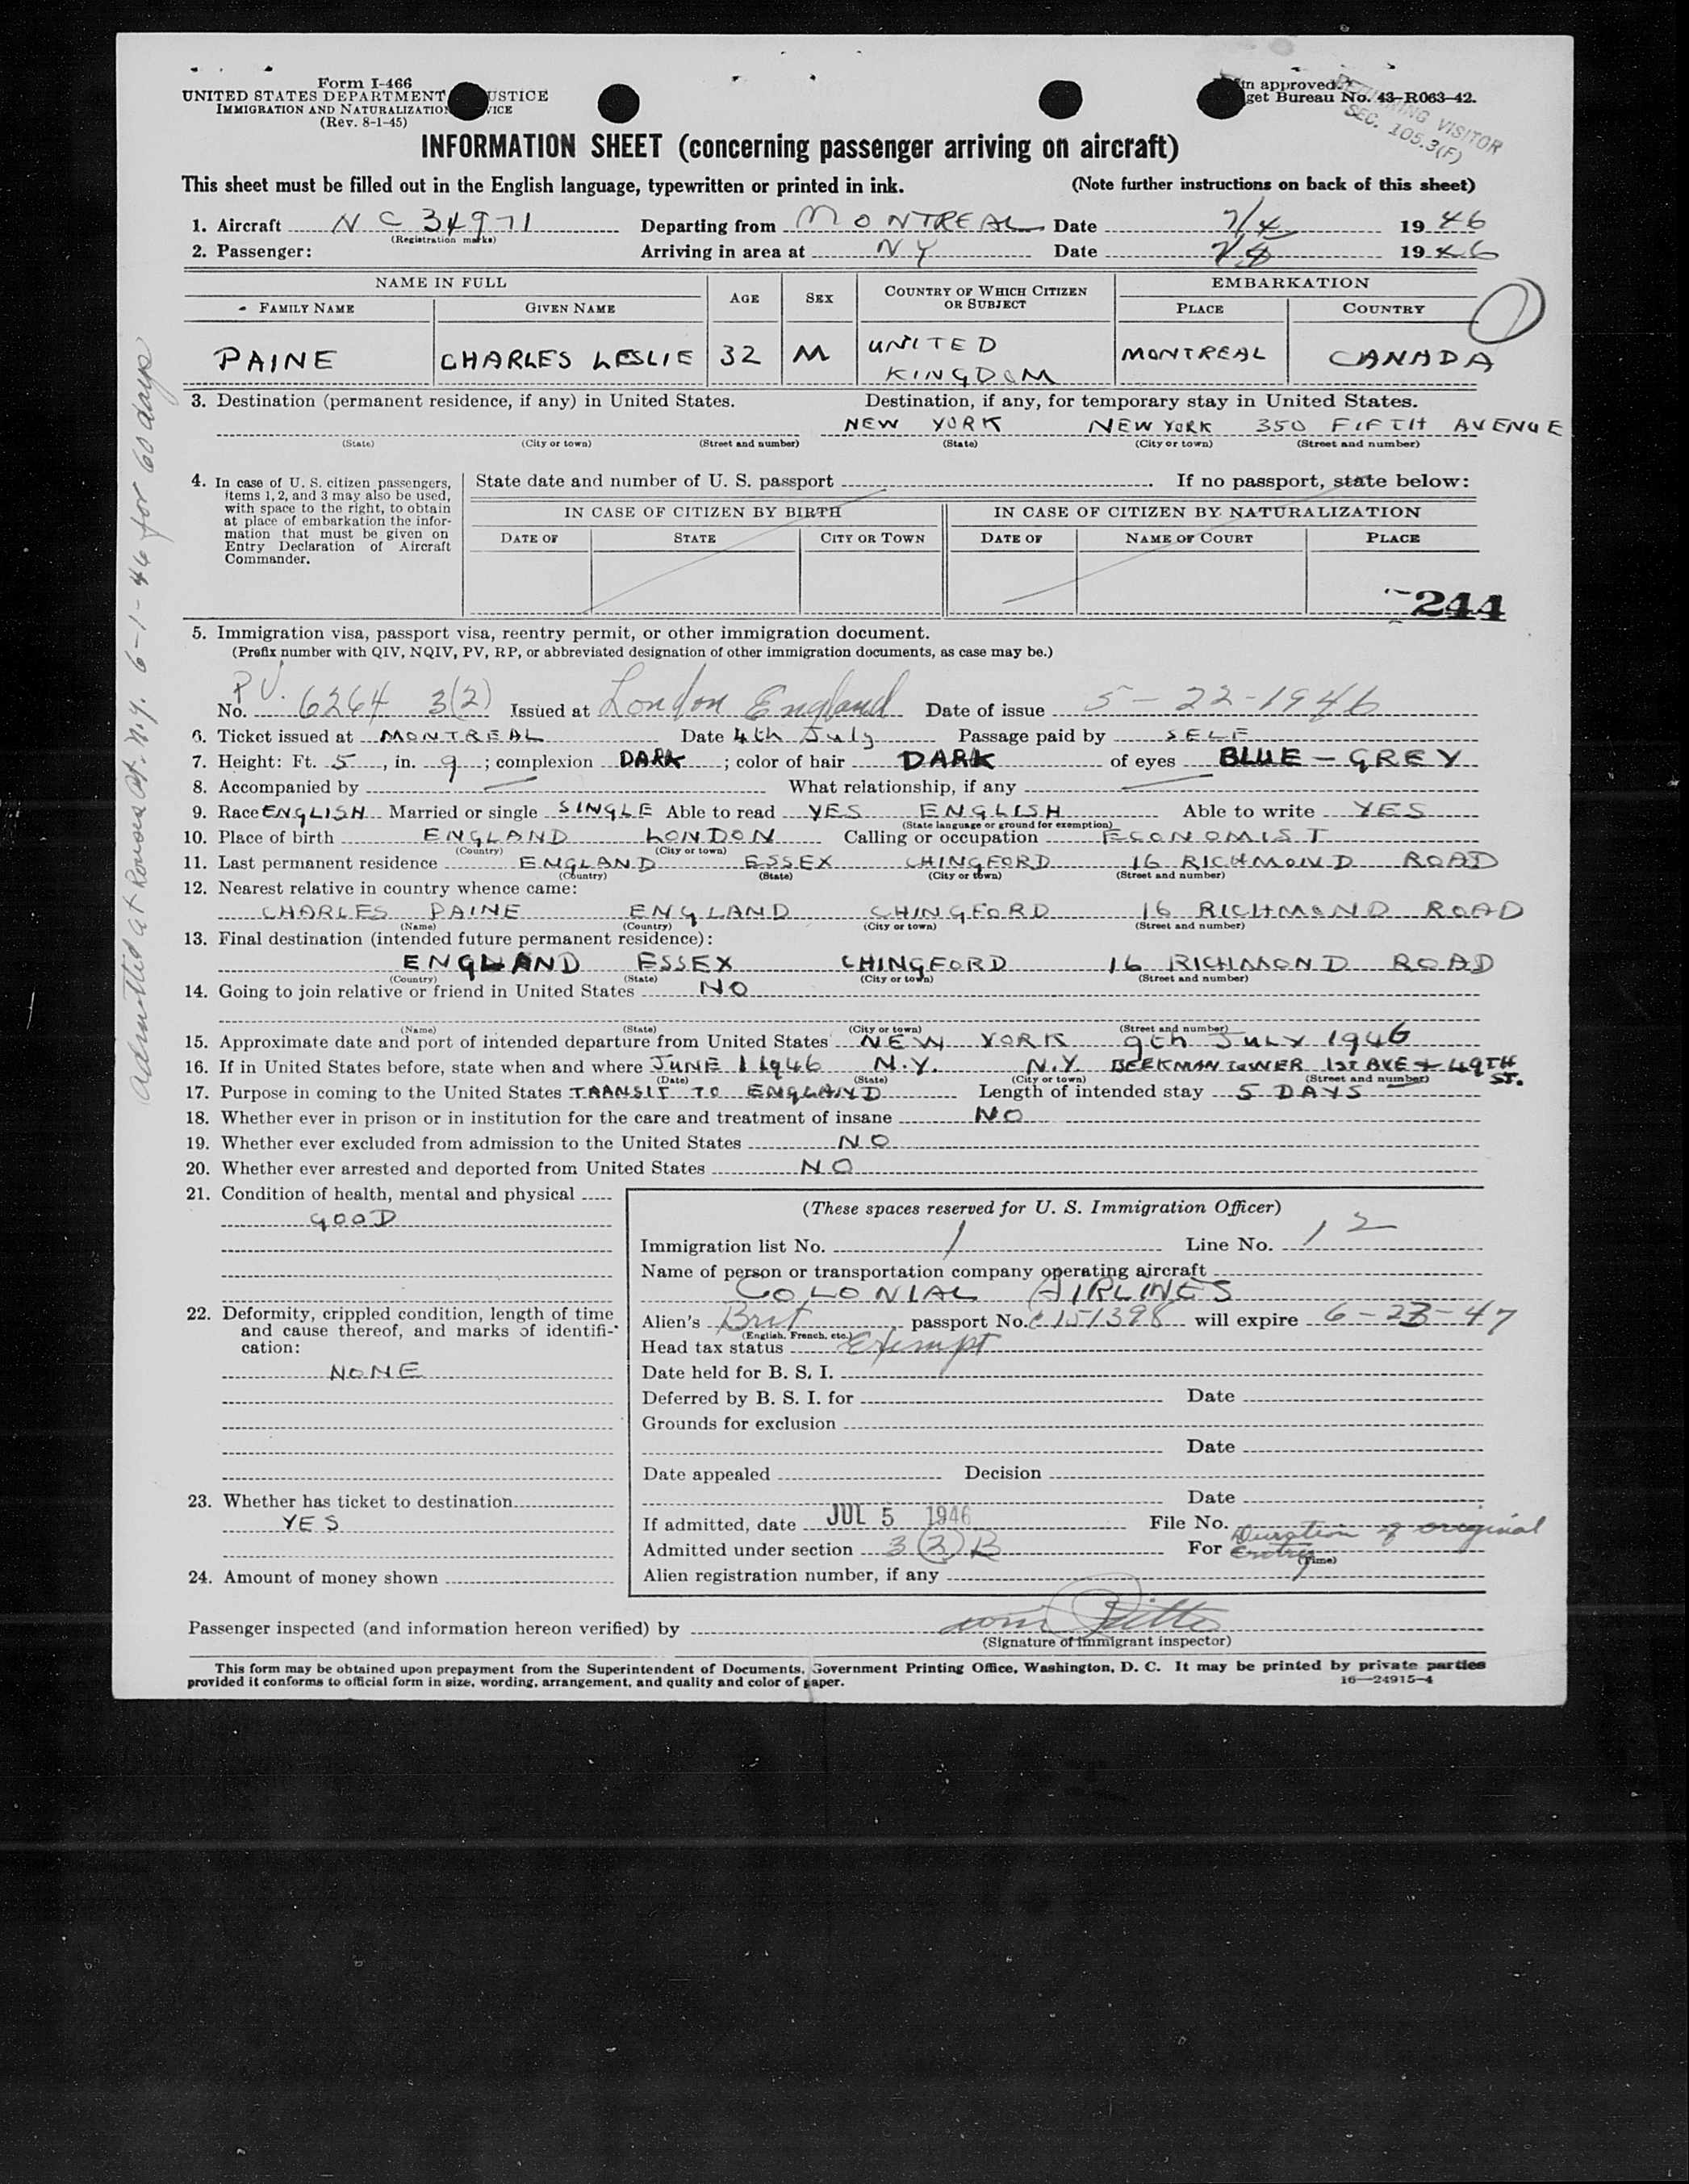 Form I-466
UNITED STATES DEPARTMENT USTICE
IMMIGRATION AND NATURALIZATION VICE
(Rev. 8-1-45)
approved.
get Bureau No. 43-R063-42.
RETURNING VISITOR
SEC. 105.3(F)
INFORMATION SHEET (concerning passenger arriving on aircraft)
This sheet must be filled out in the English language, typewritten or printed in ink. (Note further instructions on back of this sheet)
1. Aircraft NC 34971 Departing from MONTREAL Date 7/4 1946
(Registration marks)
2. Passenger: Arriving in area at NY Date 1946
NAME IN FULL AGE SEX COUNTRY OF WHICH CITIZEN OR SUBJECT EMBARKATION
FAMILY NAME GIVEN NAME PLACE COUNTRY
1
PAINE CHARLES LESLIE 32 M UNITED KINGDOM MONTREAL CANADA
3. Destination (permanent residence, if any) in United States. Destination, if any, for temporary stay in United States.
NEW YORK NEW YORK 350 FIFTH AVENUE
(State) (City or town) (Street and number) (State) (City or town) (Street and number)
4. In case of U. S. citizen passengers, items 1, 2, and 3 may also be used, with space to the right, to obtain at place of embarkation the information that must be given on Entry Declaration of Aircraft Commander.
State date and number of U. S. passport. If no passport, state below:
IN CASE OF CITIZEN BY BIRTH IN CASE OF CITIZEN BY NATURALIZATION
DATE OF STATE CITY OR TOWN DATE OF NAME OF COURT PLACE
244
5. Immigration visa, passport visa, reentry permit, or other immigration document.
(Prefix number with QIV, NQIV, PV, RP, or abbreviated designation of other immigration documents, as case may be.)
No. PV. 6264 3(2) Issued at London England Date of issue 5-22-1946
6. Ticket issued at MONTREAL Date 4th July Passage paid by SELF
7. Height: Ft. 5, in. 9; complexion DARK; color of hair DARK of eyes BLUE-GREY
8. Accompanied by — What relationship, if any —
9. Race ENGLISH Married or single SINGLE Able to read YES ENGLISH Able to write YES
(State language or ground for exemption)
10. Place of birth ENGLAND LONDON Calling or occupation ECONOMIST
(Country) (City or town)
11. Last permanent residence ENGLAND ESSEX CHINGFORD 16 RICHMOND ROAD
(Country) (State) (City or town) (Street and number)
12. Nearest relative in country whence came:
CHARLES PAINE ENGLAND CHINGFORD 16 RICHMOND ROAD
(Name) (Country) (City or town) (Street and number)
13. Final destination (intended future permanent residence):
ENGLAND ESSEX CHINGFORD 16 RICHMOND ROAD
(Country) (State) (City or town) (Street and number)
14. Going to join relative or friend in United States NO
(Name) (State) (City or town) (Street and number)
15. Approximate date and port of intended departure from United States NEW YORK 9th JULY 1946
16. If in United States before, state when and where JUNE 1 1946 N.Y. N.Y. BEEKMAN TOWER 1ST AVE + 49TH ST.
(Date) (State) (City or town) (Street and number)
17. Purpose in coming to the United States TRANSIT TO ENGLAND Length of intended stay 5 DAYS
18. Whether ever in prison or in institution for the care and treatment of insane NO
19. Whether ever excluded from admission to the United States NO
20. Whether ever arrested and deported from United States NO
21. Condition of health, mental and physical
GOOD
22. Deformity, crippled condition, length of time and cause thereof, and marks of identification:
NONE
23. Whether has ticket to destination
YES
24. Amount of money shown
(These spaces reserved for U. S. Immigration Officer)
Immigration list No. 1 Line No. 12
Name of person or transportation company operating aircraft
COLONIAL AIRLINES
Alien's Brit passport No. C151398 will expire 6-23-47
(English, French, etc.)
Head tax status Exempt
Date held for B. S. I.
Deferred by B. S. I. for Date
Grounds for exclusion
Date
Date appealed Decision
Date
If admitted, date JUL 5 1946 File No.
Admitted under section 3(2)B For Duration of original entry
(Time)
Alien registration number, if any
Passenger inspected (and information hereon verified) by
(Signature of immigrant inspector)
This form may be obtained upon prepayment from the Superintendent of Documents, Government Printing Office, Washington, D. C. It may be printed by private parties
provided it conforms to official form in size, wording, arrangement, and quality and color of paper. 16—24915-4
Admitted at N.Y. 6-1-46 for 60 days